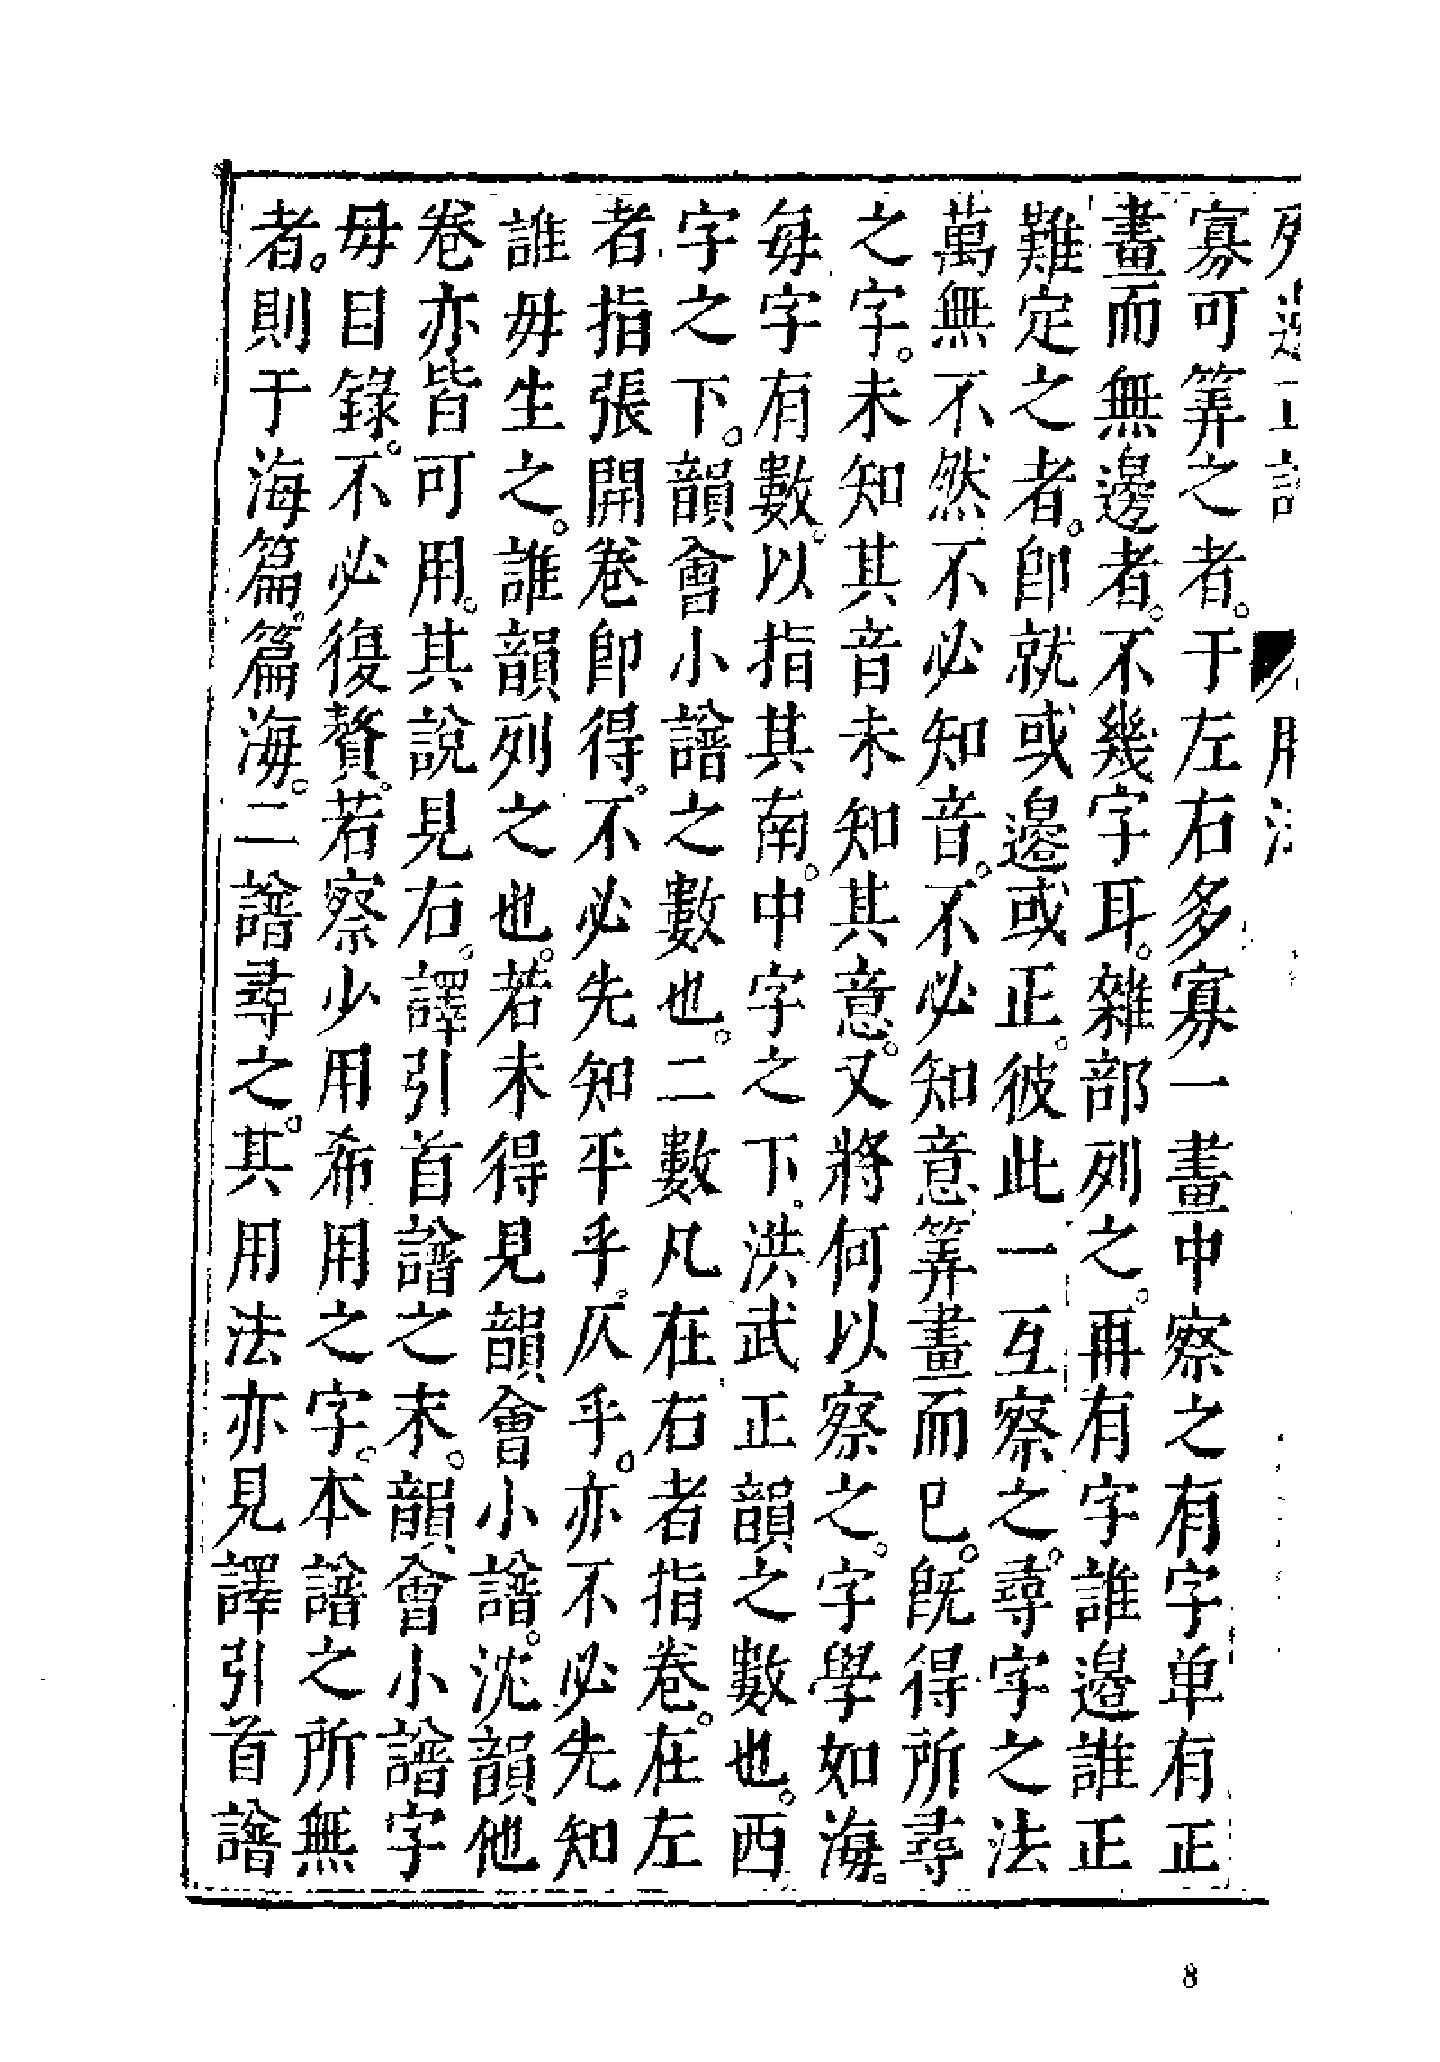 寡可筭之者。于左右多寡一畫中察之有字单有正
畫而無邊者。不幾字耳。雜部列之。再有字誰邉誰正
難定之者。卽就或邉或正。彼此一互察之。尋字之法
萬無不然不必知音。不必知意筭畫而已。旣得所尋
之字。未知其音未知其意。又將何以察之。字學如海。
每字有數。以指其南。中字之下。洪武正韻之數也。西
字之下。韻會小譜之數也。二數凡在右者指卷。在左
者指張開卷卽得。不必先知平乎。仄乎。亦不必先知
誰母生之。誰韻列之也。若未得見韻會小譜。沈韻他
卷亦皆可用。其說見右。譯引首譜之末。韻會小譜字
母目錄。不必復贅。若察少用希用之字。本譜之所無
者。則于海篇。篇海。二譜尋之。其用法亦見譯引首譜
8